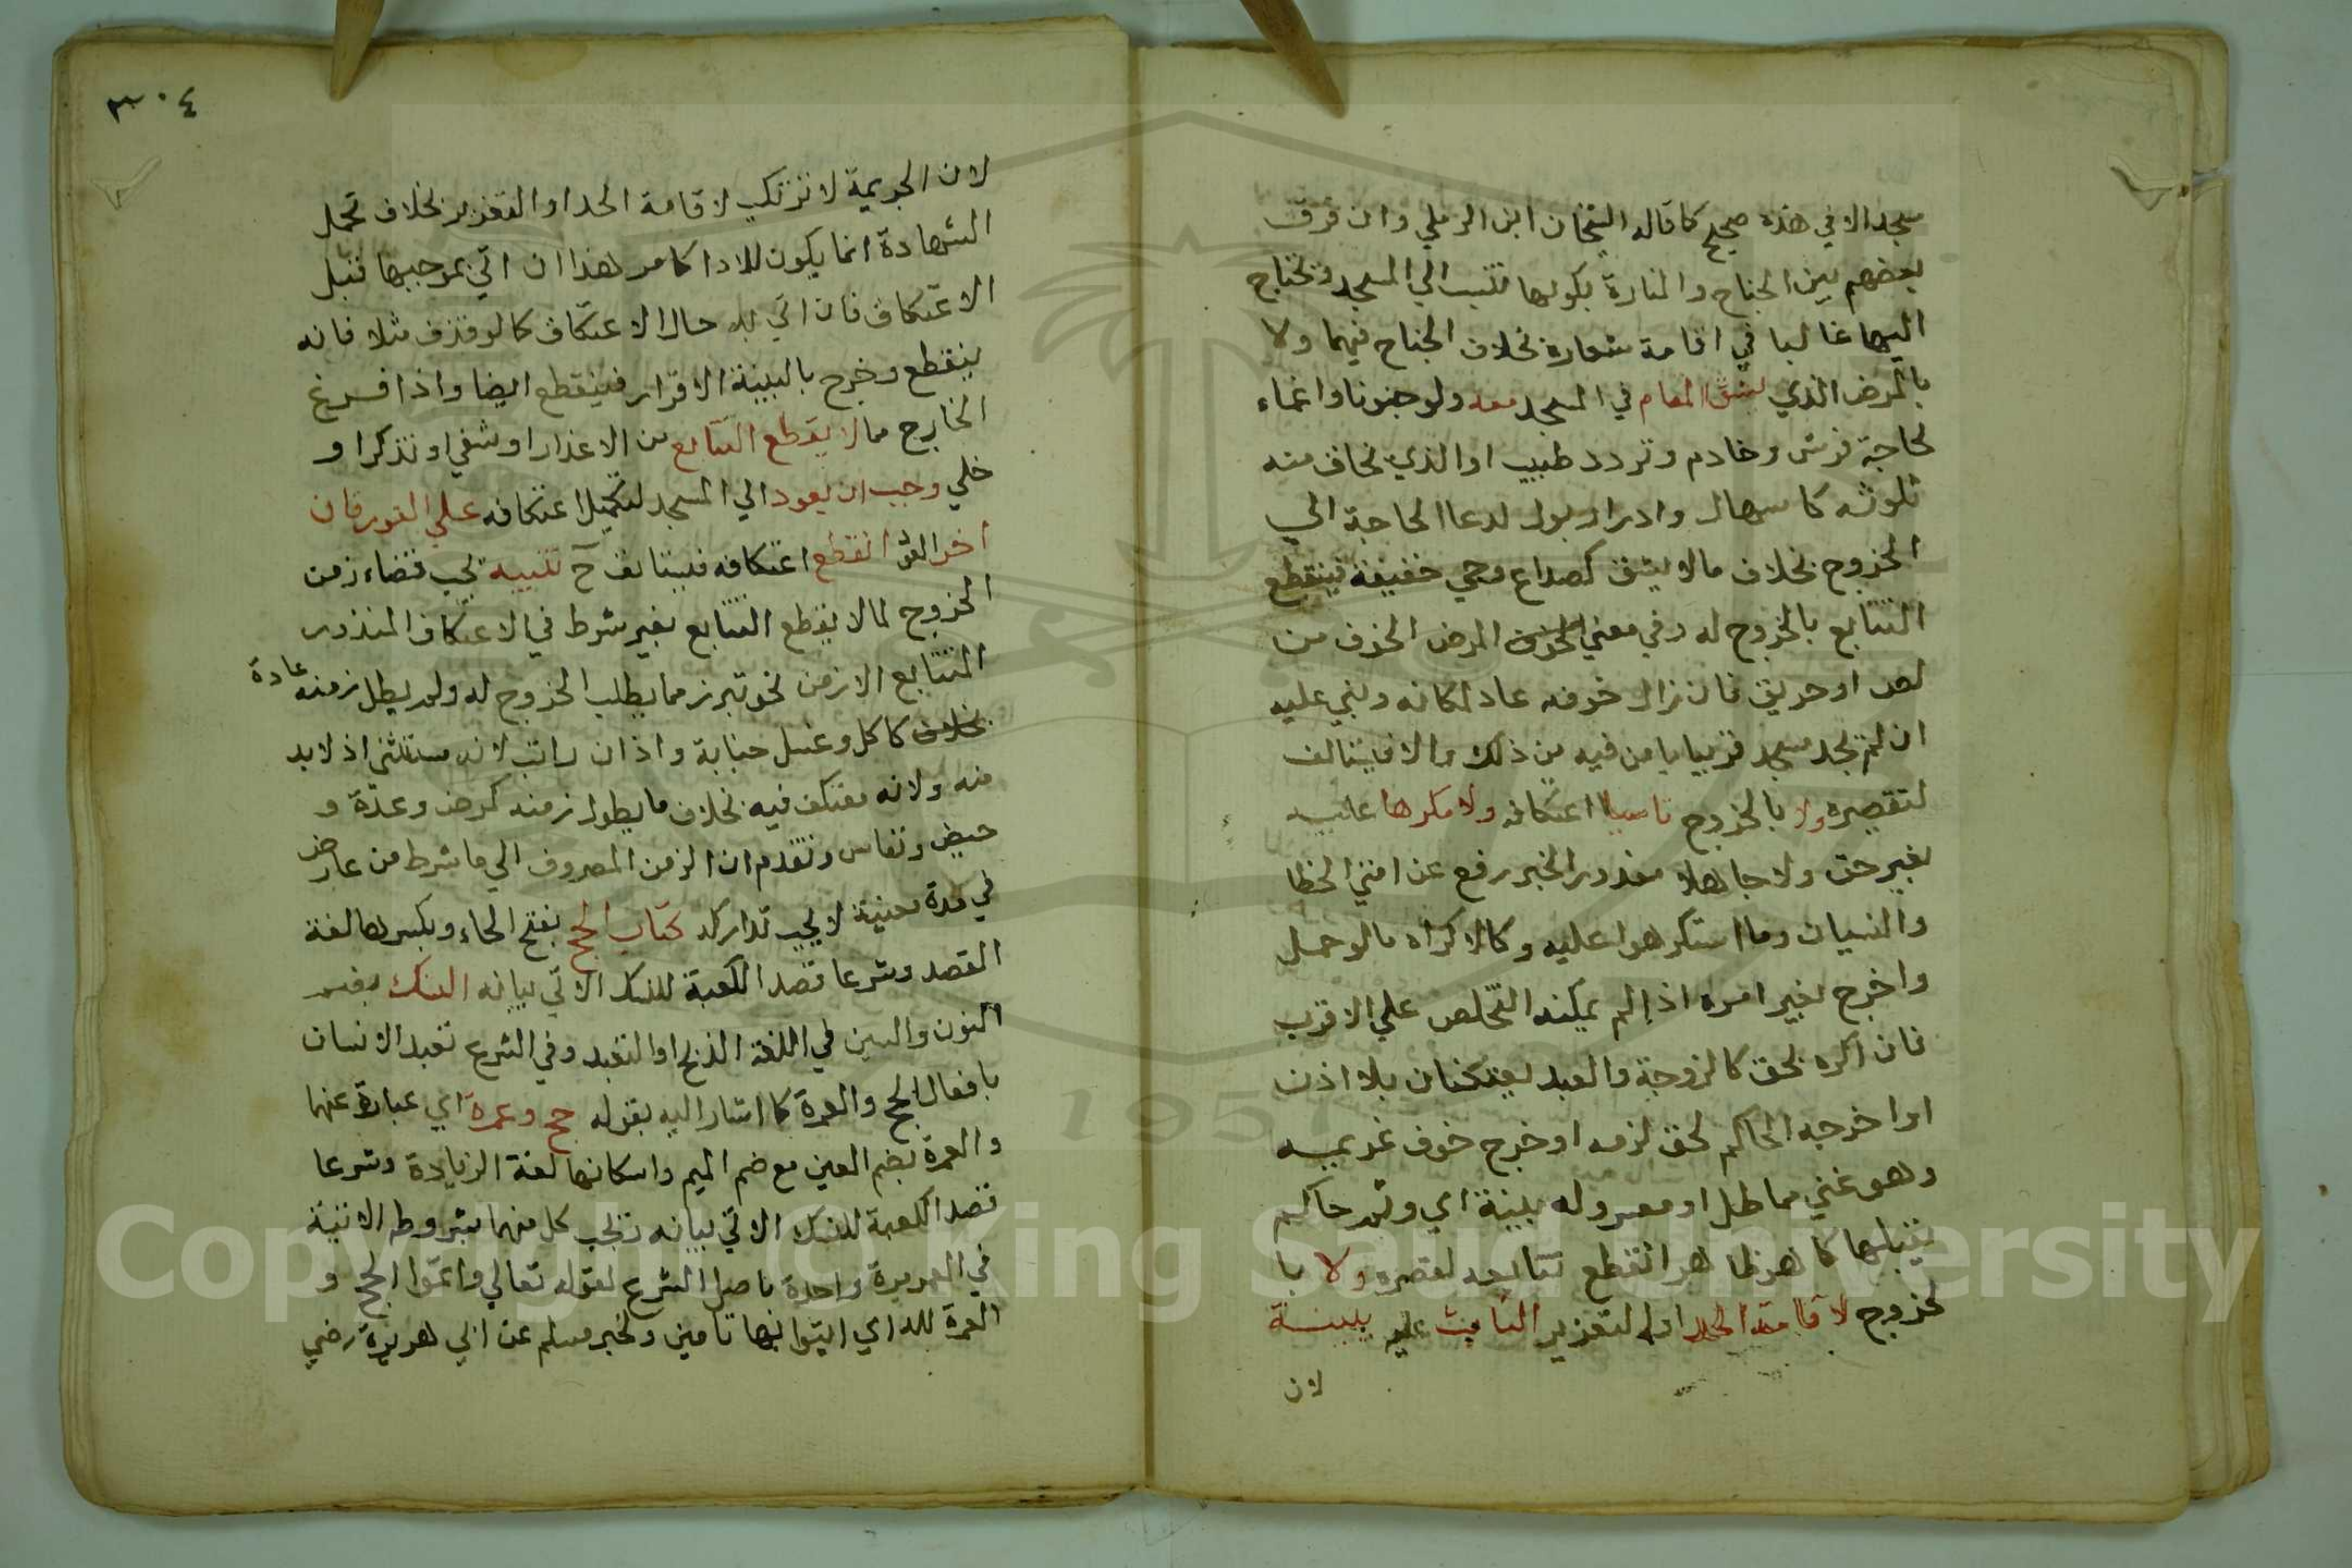 مسجد الا في هذه صحيح كما قاله الشيخان ابن الرملي وان فرق
بعضهم بين الجناح والمنارة بكونها تنسب الي المسجد وتحتاج
اليها غالبا في اقامة شعاره بخلاف الجناح فيهما ولا
بالمرض الذي يشق المقام في المسجد معه ولو جنونا واغماء
لحاجة فرش وخادم وتردد طبيب او الذي يخاف منه
تلويثه كاسهال وادرار بول لدعا الحاجة الي
الخروج بخلاف ما لا يشق كصداع وحمي خفيفة فينقطع
التتابع بالخروج له وفي معني المرض الخوف من
لص او حريق فان زال خوفه عاد لمكانه وبني عليه
ان لم يجد مسجد قريبا يامن فيه من ذلك والا فيستانف
لتقصيره ولا بالخروج ناسيا اعتكافه ولا مكرها عليه
بغير حق ولا جاهلا معذور الخبر رفع عن امتي الخطا
والنسيان وما استكرهوا عليه وكالاكراه ما لو حمل
واخرج بغير امره اذا لم يمكنه التخلص علي الاقرب
فان اكره بحق كالزوجة والعبد يعتكفان بلا اذن
او اخرجه الحاكم لحق لزمه او خرج خوف غريمه
وهو غني مماطل او معسر وله بينة اي وثم حاكم
يقبلها كما هو ظاهر انقطع تتابعه لتقصيره ولا با
لخروج لاقامة الحد او التعزير الثابت عليه ببينة
لان
٣٠٤
لان الجريمة لا ترتكب لاقامة الحد او التعزير بخلاف تحمل
الشهادة انما يكون للادا كما مر هذا ان اتي بموجبها قبل
الاعتكاف فان اتي به حال الاعتكاف كما لو قذف مثلا فانه
ينقطع وخرج بالبينة الاقرار فينقطع ايضا واذا فرغ
الخارج مما لا يقطع التتابع من الاعذار او شفي او تذكر او
خلي وجب ان يعود الي المسجد لتكميل اعتكافه علي الفور فان
اخر العود انقطع اعتكافه فيستانف ح تنبيه يجب قضاء زمن
الخروج لما لا يقطع التتابع بغير شرط في الاعتكاف المنذور
المتتابع الا زمن نحو تبرز مما يطلب الخروج له ولم يطل زمنه عادة
كاكل وغسل جنابة واذان راتب لانه مستثني اذ لا بد
منه ولانه معتكف فيه بخلاف ما يطول زمنه كمرض وعدة و
حيض ونفاس وتقدم ان الزمن المصروف الي ما شرط من عارض
في مدة معينة لا يجب تداركه كتاب الحج بفتح الحاء وبكسرها لغة
القصد وشرعا قصد الكعبة للنسك الاتي بيانه النسك بضم
النون والسين في اللغة الذبح او التعبد وفي الشرع تعبد الانسان
بافعال الحج والعمرة كما اشار اليه بقوله حج وعمرة اي عبارة عنهما
والعمرة بضم العين مع ضم الميم واسكانها لغة الزيادة وشرعا
قصد الكعبة للنسك الاتي بيانه وتجب كل منهما بشروطه الاتية
في العمر مرة واحدة باصل الشرع لقوله تعالي واتموا الحج و
العمرة لله اي ايتوا بها تامين ولخبر مسلم عن ابي هريرة رضي